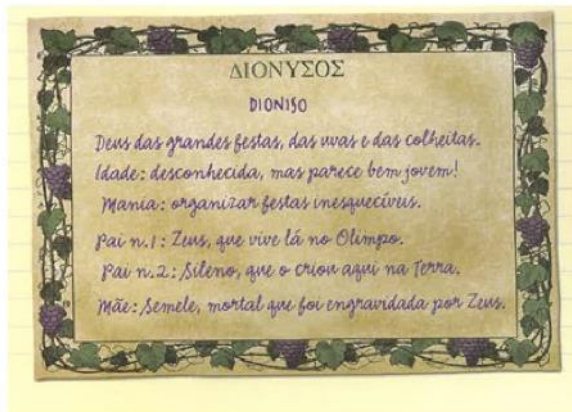 ΔΙΟΝΥΣΟΣ
DIONISO
Deus das grandes festas, das uvas e das colheitas.
Idade: desconhecida, mas parece bem jovem!
Mania: organizar festas inesquecíveis.
Pai n.1: Zeus, que vive lá no Olimpo.
Pai n.2: Sileno, que o criou aqui na Terra.
Mãe: Semele, mortal que foi engravidada por Zeus.